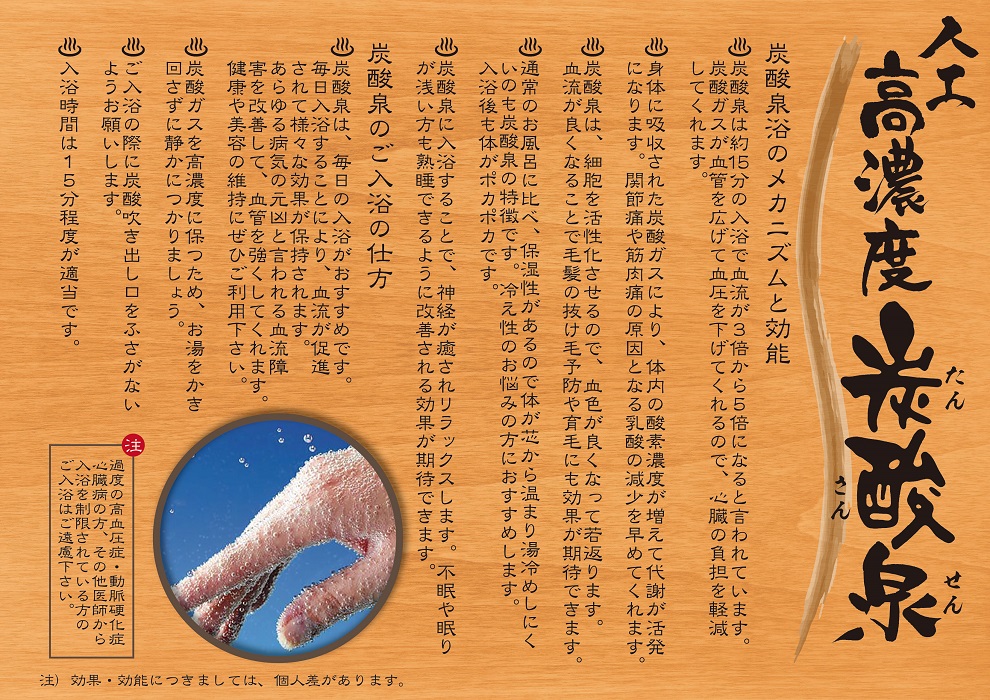 人工
高濃度
炭酸泉
たん
さん
せん
炭酸泉浴のメカニズムと効能
炭酸泉は約15分の入浴で血流が3倍から5倍になると言われています。
炭酸ガスが血管を広げて血圧を下げてくれるので、心臓の負担を軽減
してくれます。
身体に吸収された炭酸ガスにより、体内の酸素濃度が増えて代謝が活発
になります。関節痛や筋肉痛の原因となる乳酸の減少を早めてくれます。
炭酸泉は、細胞を活性化させるので、血色が良くなって若返ります。
血流が良くなることで毛髪の抜け毛予防や育毛にも効果が期待できます。
通常のお風呂に比べ、保湿性があるので体が芯から温まり湯冷めしにく
いのも炭酸泉の特徴です。冷え性のお悩みの方におすすめします。
入浴後も体がポカポカです。
炭酸泉に入浴することで、神経が癒されリラックスします。不眠や眠り
が浅い方も熟睡できるように改善される効果が期待できます。
炭酸泉のご入浴の仕方
炭酸泉は、毎日の入浴がおすすめです。
毎日入浴することにより、血流が促進
されて様々な効果が保持されます。
あらゆる病気の元凶と言われる血流障
害を改善して、血管を強くしてくれます。
健康や美容の維持にぜひご利用下さい。
炭酸ガスを高濃度に保つため、お湯をかき
回さずに静かにつかりましょう。
ご入浴の際に炭酸吹き出し口をふさがない
ようお願いします。
入浴時間は15分程度が適当です。
注
過度の高血圧症・動脈硬化症
心臓病の方、その他医師から
入浴を制限されている方の
ご入浴はご遠慮下さい。
注) 効果・効能につきましては、個人差があります。